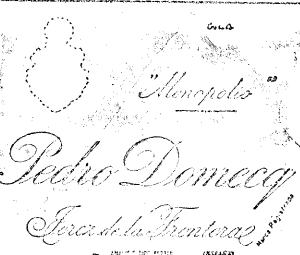 "Monopolio"
Pedro Domecq
Jerez de la Frontera
Marca Registrada